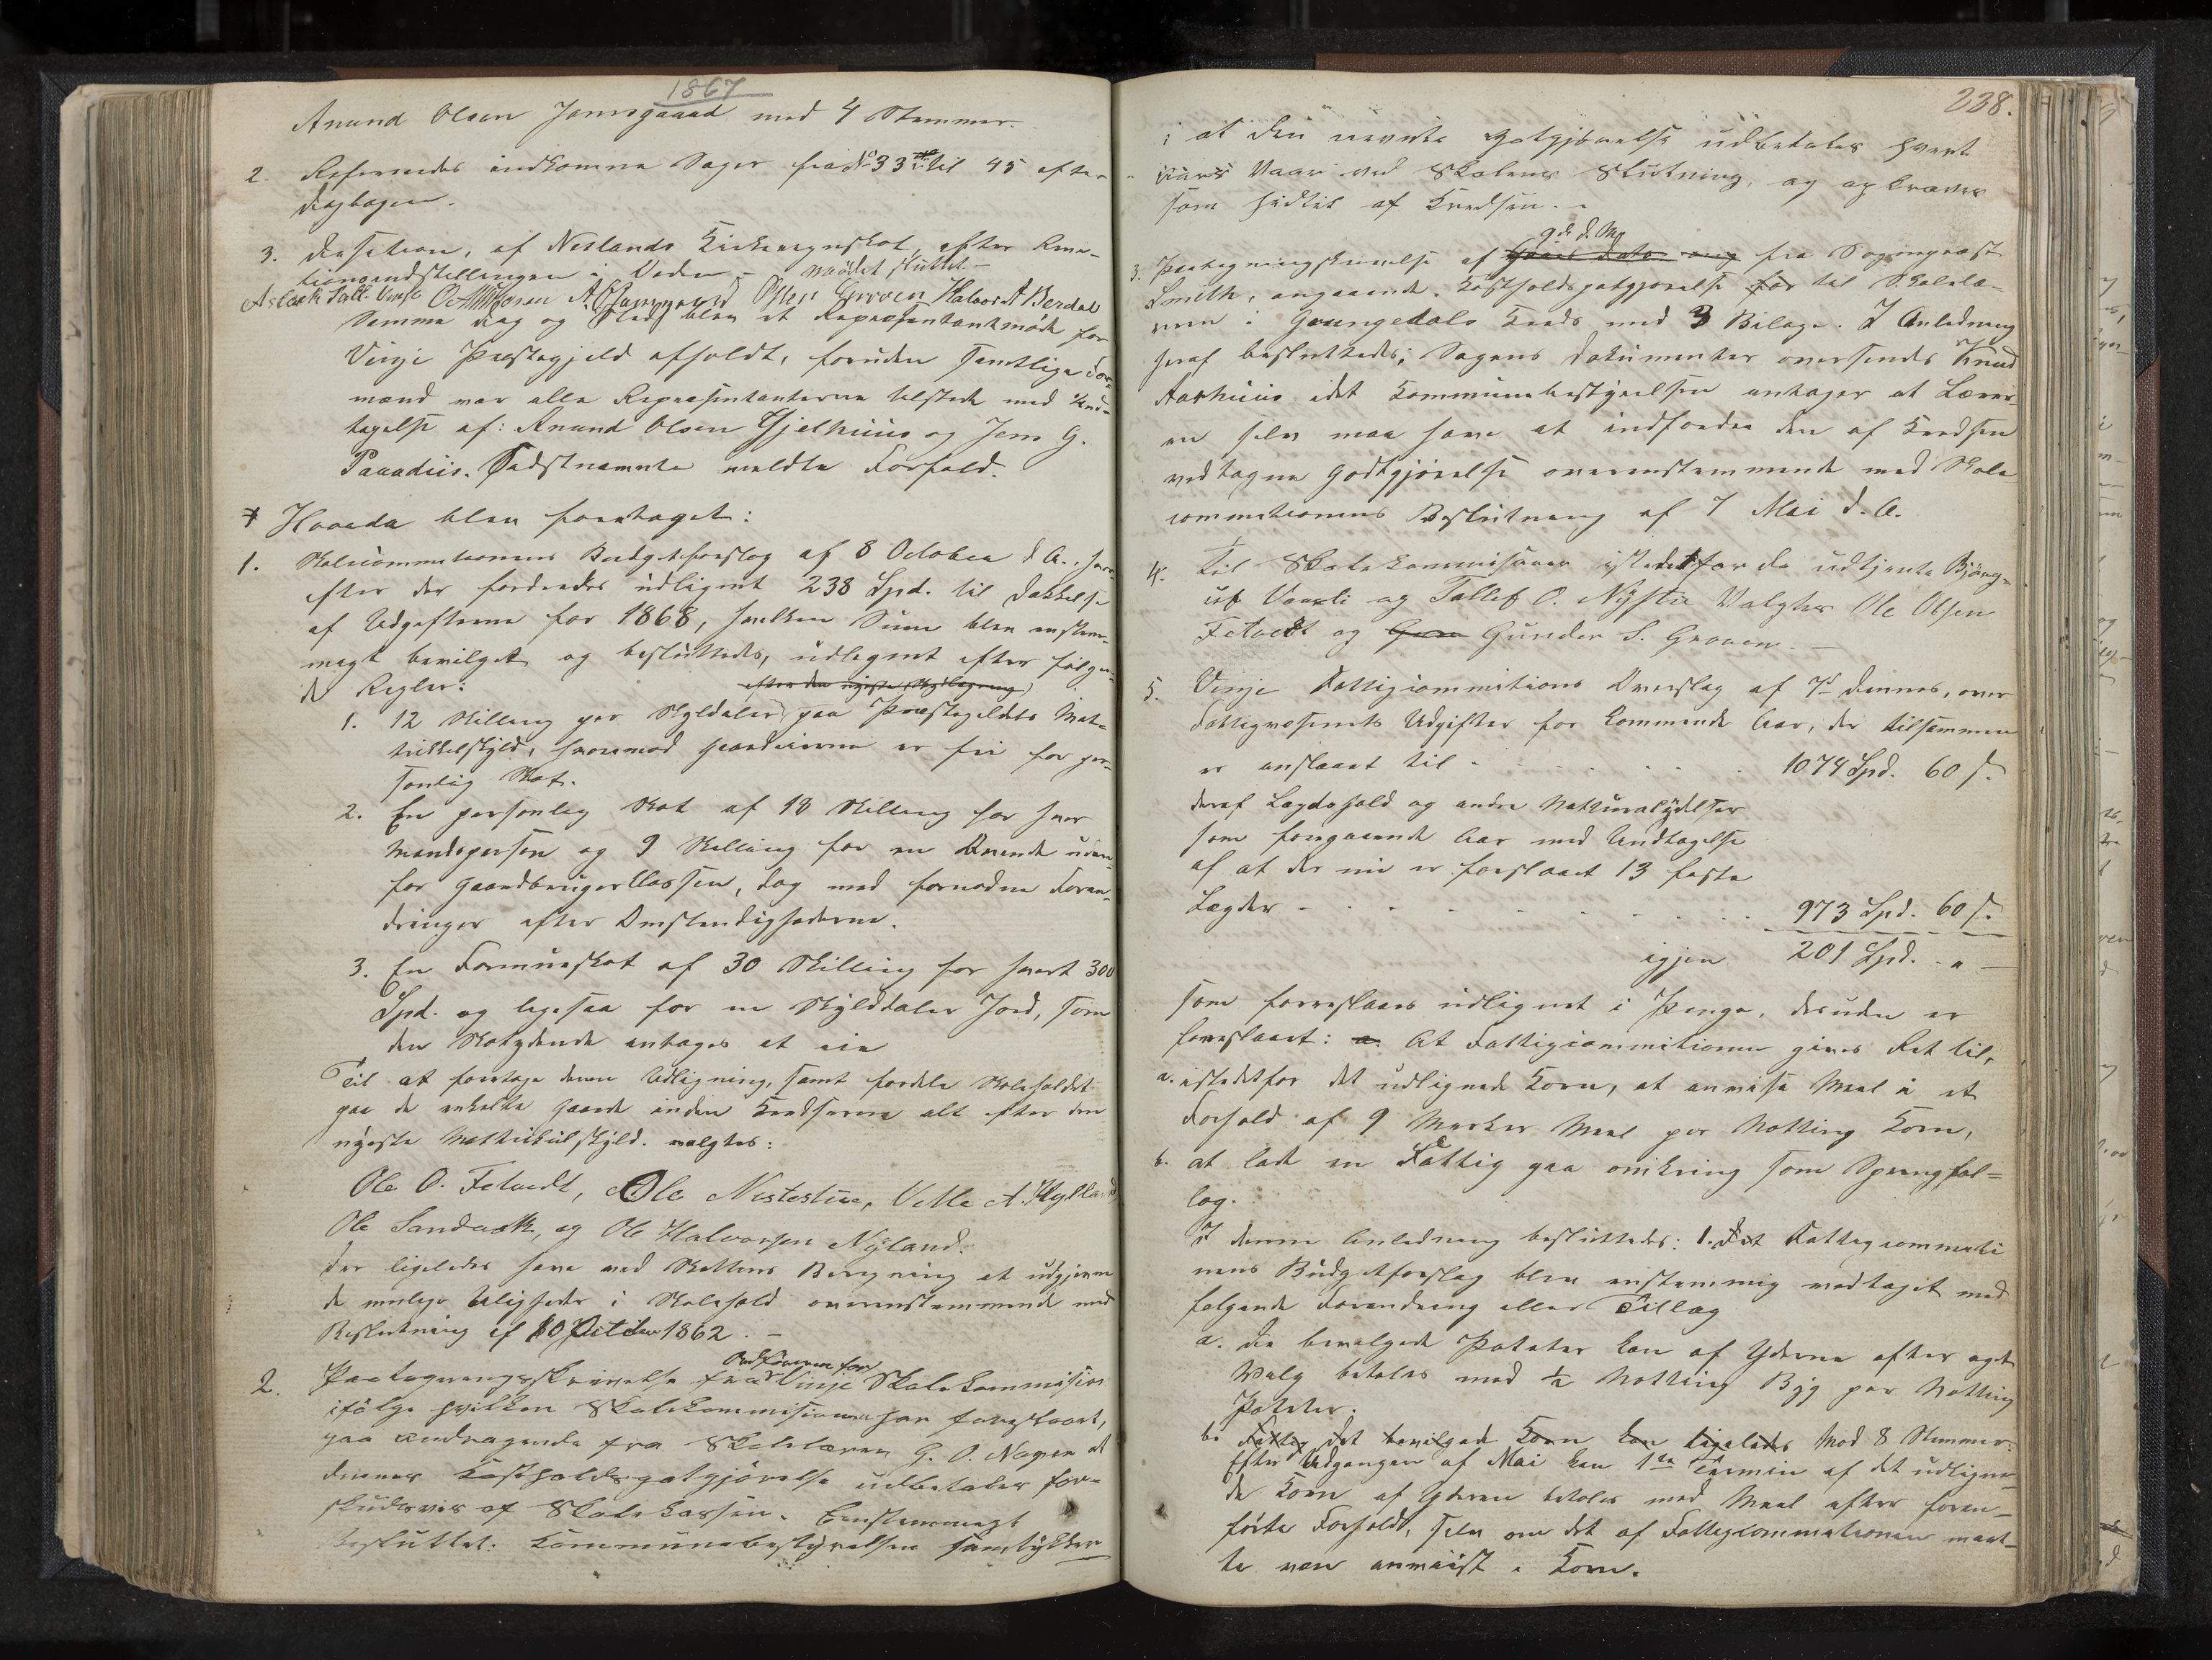 1867
Anund Olsen Jamsgaard med 4 Stemmer.
2. Refereredes indkomne Sager fra No 33 til 45 efter
Dagbogen.
3. Decition, af Neslands Kirkeregnskab, efter Ana-
tionsudstillingen i Boden. – mødet sluttet –
Aslack Tall. Vinje Ole Olsen Groven Halvor A Berdal
Samme Dag og Sted blev et Representantmøde for
Vinje Præstegjeld afholdt, foruden samtlige For-
mænd var alle Representanterne tilstede med Und-
tagelse af: Anund Olsen Gjelhuus og Jens G.
Paradiis. Sidstnævnte meldte Forfald.
Hvorda blev foretaget:
1. Skolecommitionens Budgetforslag af 8 October d. A., hvor-
efter der fordredes udlignet 238 Spd. til Dækkelse
af Udgifterne for 1868, hvilken Sum blev enstem-
migt bevilget og besluttedes, udlignet efter følgen-
de Regler:
efter den nyeste Skyldlægning
1. 12 Skilling per Skyldaler paa Præstegjeldets Mat-
trikkelskyld, hvoremod Gaardeierne er fri for per-
sonlig Skat.
2. En personlig Skat af 18 Skilling for hver
Mandsperson og 9 Skilling for en Qvinde uden-
for Gaardbrugerklassen, dog med fornødne Foran-
dringer efter Omstændighederne.
3. En Formueskat af 30 Skilling for hvert 300
Spd. og ligesaa for en Skylddaler Jord, som
den Skatydende antages at eie
Til at foretage denne Udligning, samt fordele Skoleholdet
paa de enkelte Gaarde inden Kredserne alt efter den
nyeste Mattrikulskyld. valgtes:
Ole O. Fetvedt, Ole Nistestue, Vetle A. Hylland
Ole Sandvok, og Ole Halvorsen Nyland.
der ligeledes have ved Skattens Beregning at udgjevne
de mulige Uligheder i Skolehold overenstemmende med
Beslutning af 10 October 1862. –
2. Paategningsskrivelse fra Ordføreren for Vinje Skolekommision
ifølge hvilken Skolekommisionen har foreslaaet,
paa andragende fra Skolelærer G. O. Napen at
dennes Kostholdsgodtgjørelse udbetales for-
skudsvis af Skolekassen. Eenstemmigt
Besluttet: Kommunebestyrelsen samtykker
228.
i at den nævnte Godtgjørelse udbetales hvert
Aars Vaar ved Skolens Slutning, og opkræves
som hidtil af Kredsen. –
9de d. M.
3. Paategningskrivelse af fra Sogneprest
Smith, angaaende Kostholdsgodtgjørelse til Skolelæ-
rren i Grungedals Kreds med 3 Bilage. I Anledning
heraf besluttedes; Sagens Dokumenter oversendes Knud
Aarhuus idet Kommunebestyrelsen antager at Lærer-
en selv maa have at indfordre den af Kredsen
vedtagne Godtgjørelse overenstemmende med Skole
commitionens Beslutning af 7 Mai d. A.
4. Til Skolekommisairer istedetfor de udtjente Bjørg-
ulf Vaali og Tallef O. Nystu valgtes Ole Olsen
Fetvedt og Gunder S. Groven. –
5. Vinje Fattigcommitions Overslag af 7de dennes, over
Fattigvæsenets Udgifter for kommende Aar, der tilsammen
er anslaaet til . . . . . . . 1074 Spd. 60 s.
deraf Lægdehold og andre Naturalydelser
som foregaaende Aar med Undtagelse
af at der nu er foreslaaet 13 faste
Lægder - . . . . . . . . . 973 Spd. 60 s.
igjen 201 Spd. - " -
som foreslaaes udlignet i Penge, desuden er
foreslaaet: a. At Fattigcommitionen gives Ret til,
a. istedetfor det udlignede Korn, at anvise Meel i et
Forhold af 9 Marker Meel per Notting Korn,
b. at lade en Fattig gaa omkring som Sprengfal-
log.
I denne Anledning besluttedes: 1. Fattigcommiti
onens Budgetforslag blev enstemmig vedtaget med
følgende Forandring eller Tillæg
a. De bevilgede Poteter kan af Yderne efter eget
Valg betales med ½ Notting Byg per Notting
Poteter.
b. Fattig det bevilgede Korn kan ligeledes Mod 8 Stemmer.
Efter Udgangen af Mai kan 1ste Termin af det udligne-
de Korn af Yderen betales med Meel efter foran-
førte Forhold, selv om det af Fattigcommitionen maat-
te være anviist i Korn.